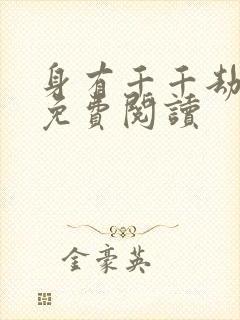 身有千千劫
免費閱讀
金豪英